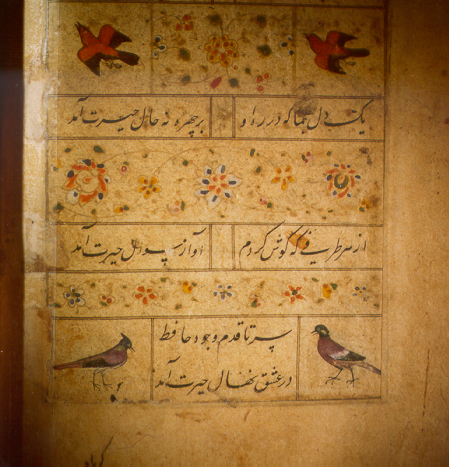 یک دل بنما که در ره او بر چهره نه خال حیرت آمد
از هر طرفی که گوش کردم آواز سوال حیرت آمد
سر تا قدم وجود حافظ
در عشق نهال حیرت آمد